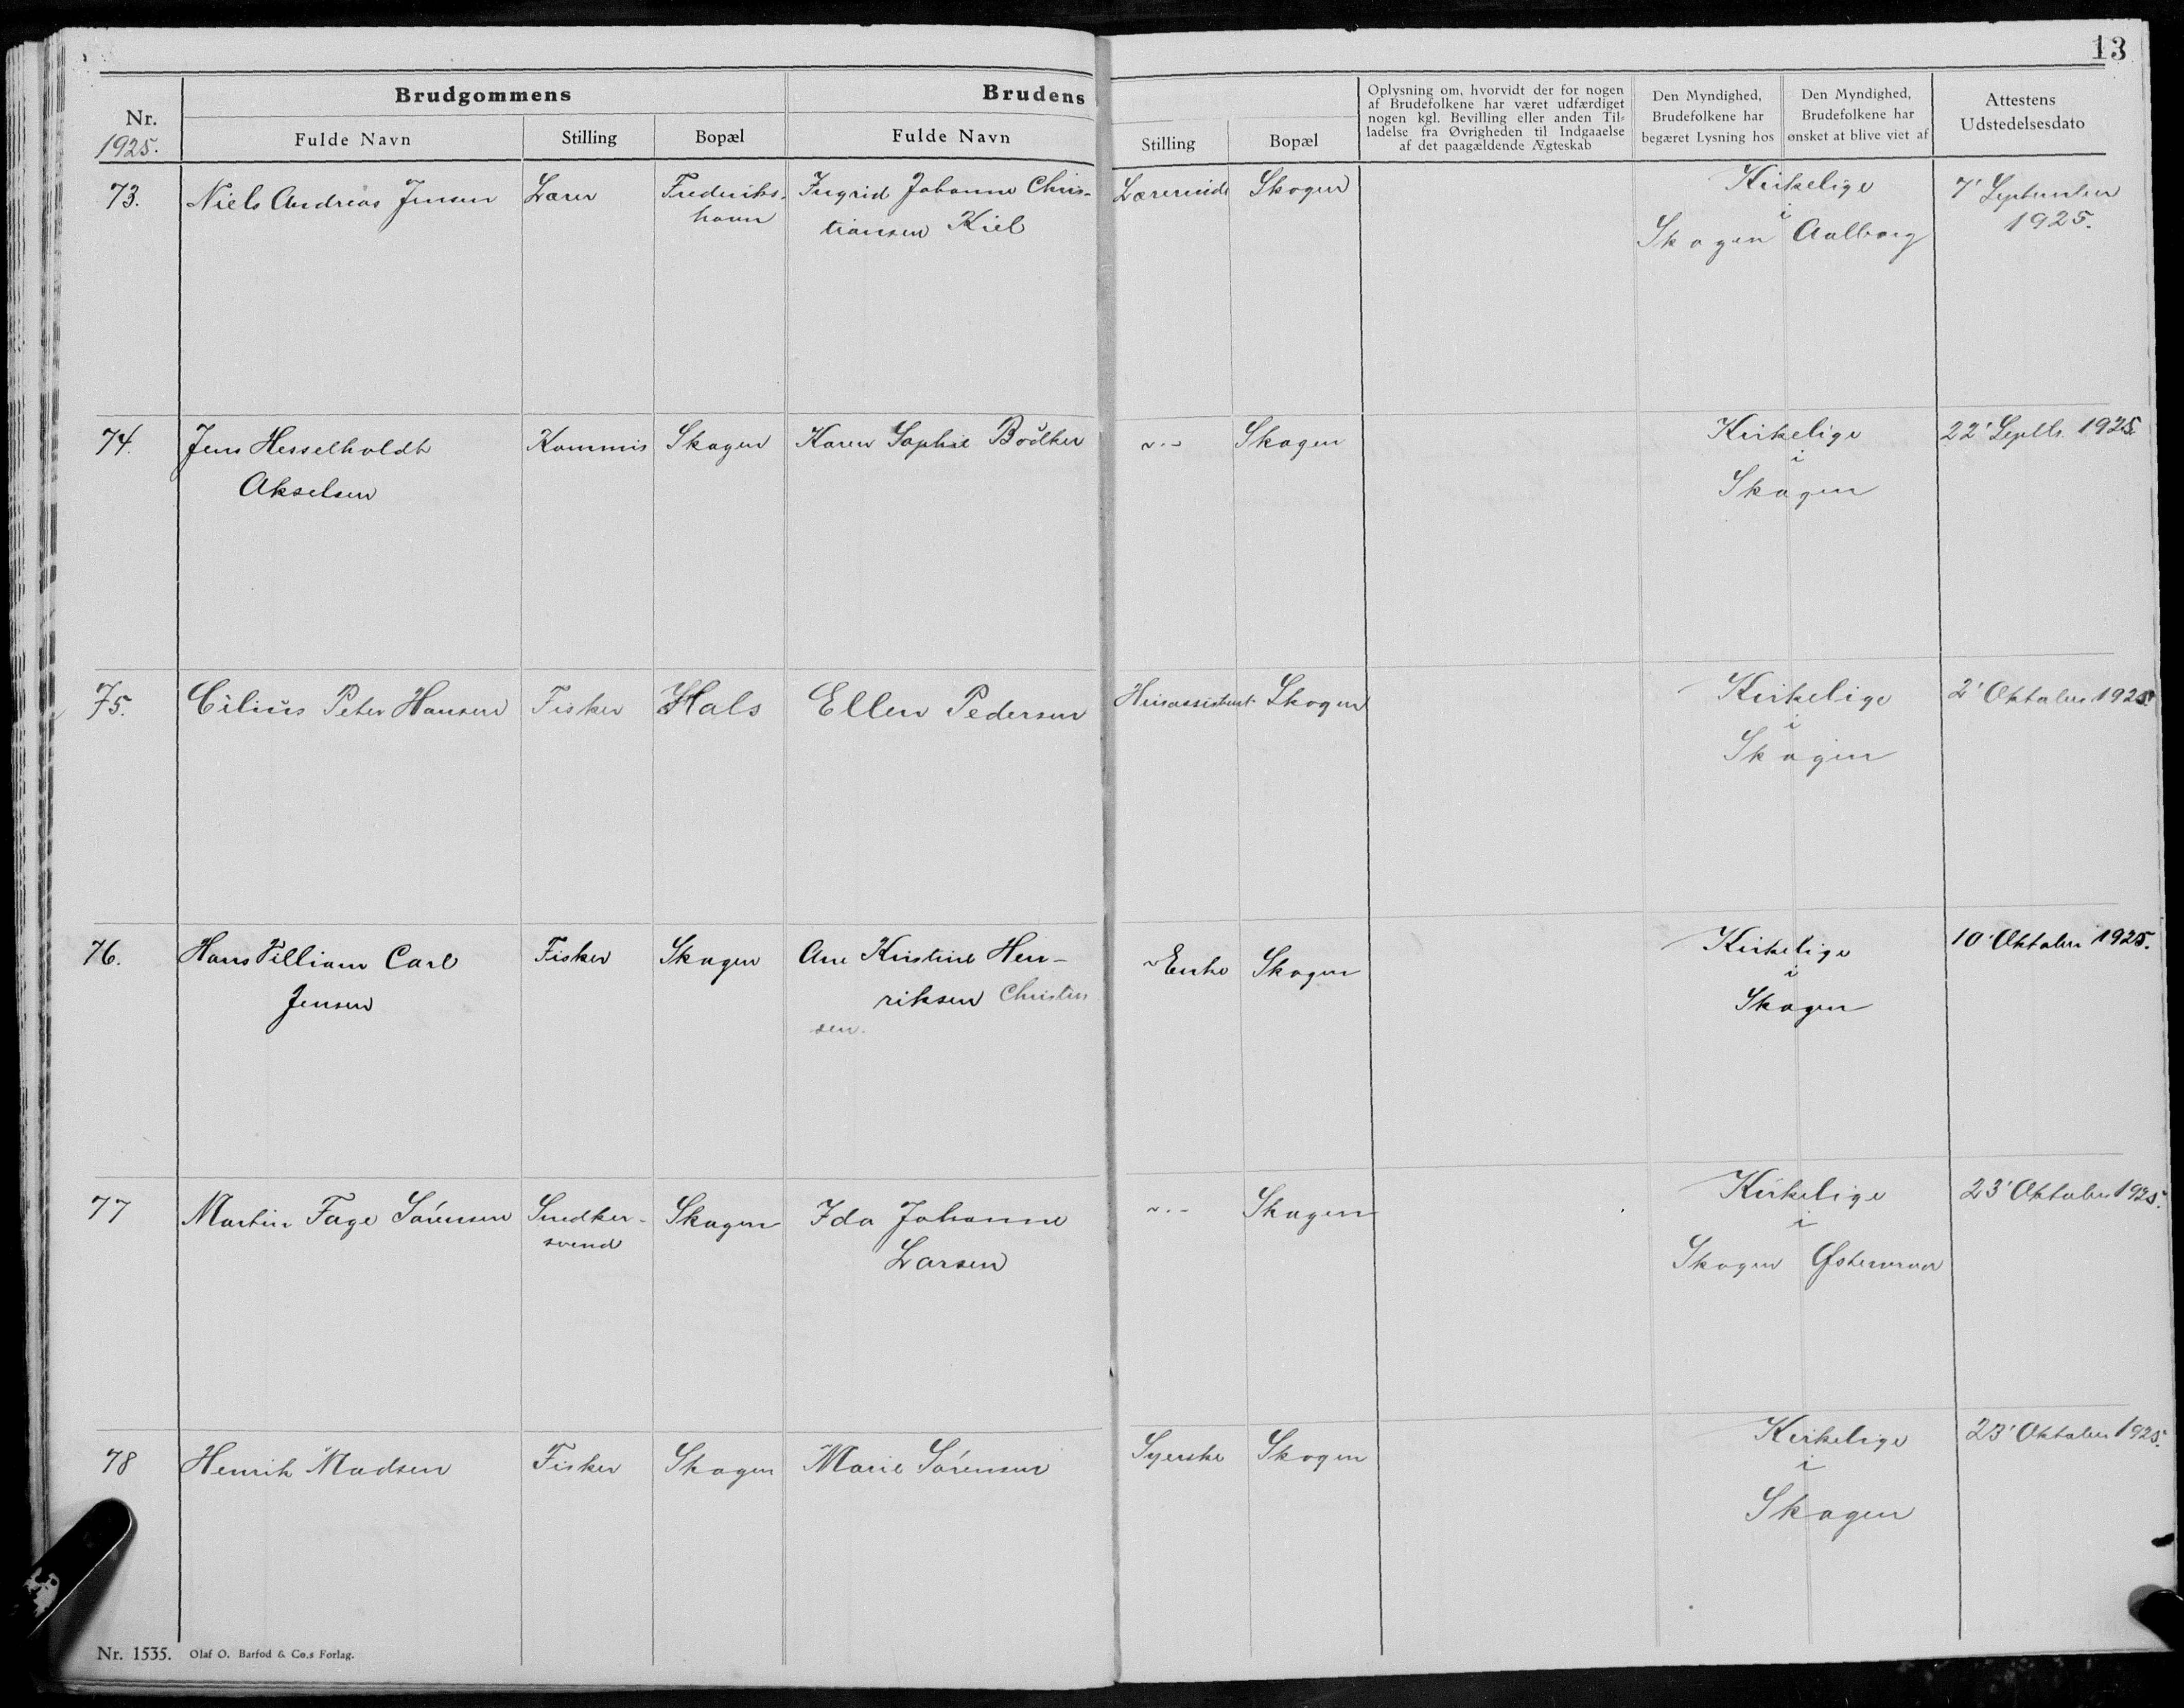 13
Brudgommens
Brudens
Nr.
1925.
Fulde Navn
Stilling
Bopæl
Fulde Navn
Stilling
Bopæl
Oplysning om, hvorvidt der for nogen
af Brudefolkene har været udfærdiget
nogen kgl. Bevilling eller anden Til-
ladelse fra Øvrigheden til Indgaaelse
af det paagældende Ægteskab
Den Myndighed,
Brudefolkene har
begæret Lysning hos
Den Myndighed,
Brudefolkene har
ønsket at blive viet af
Attestens
Udstedelsesdato
73. Niels Andreas Jensen Lærer Frederiks- Ingrid Johanne Chris- Lærerinde Skagen Kirkelige 7' September
havn tiansen Kiel i 1925.
Skagen Aalborg
74. Jens Hesselholdt Kommis Skagen Karen Sophie Bödker ~.- Skagen Kirkelige 22' Septb. 1925.
Akselsen i
Skagen
75. Cilius Peter Hansen Fisker Hals Ellen Pedersen Husassistent Skagen Kirkelige 2' Oktober 1925.
i
Skagen
76. Hans Villiam Carl Fisker Skagen Ane Kristine Hen- Enke Skagen Kirkelige 10' Oktober 1925.
Jensen riksen Christen i
sen. Skagen
77 Martin Fage Sørensen Snedker- Skagen Ida Johanne ~.- Skagen Kirkelige 23' Oktober 1925.
svend Larsen i
Skagen Østervraa
78 Henrik Madsen Fisker Skagen Marie Sørensen Syerske Skagen Kirkelige 23' Oktober 1925.
i
Skagen
Nr. 1535. Olaf O. Barfod & Co.s Forlag.